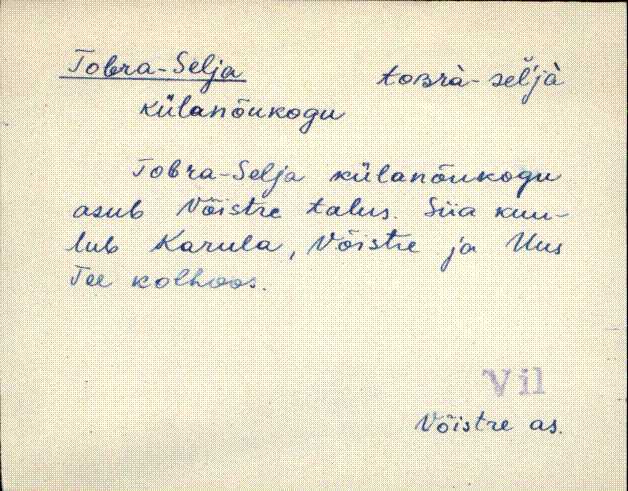 Tobra-Selja toBrà-sel̆jà
külanõukogu
Tobra-Selja külanõukogu
asub Võistre talus. Siia kuu-
lub Karula, Võistre ja Uus
Tee kolhoos.
Vil
Võistre as.